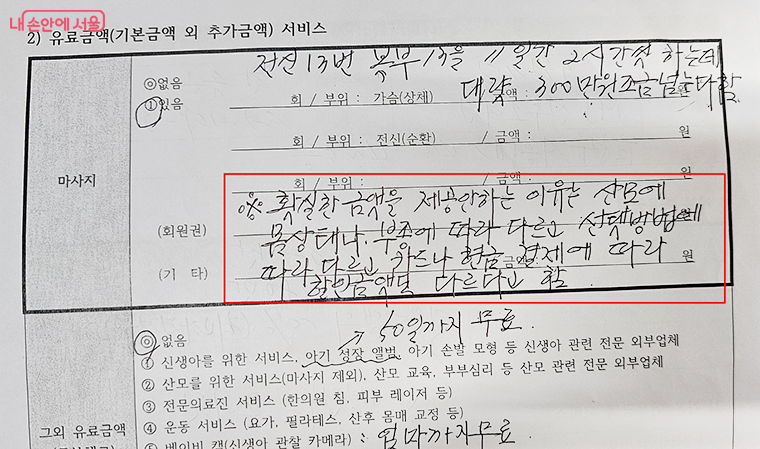 내 손안에 서울
2) 유료금액(기본금액 외 추가금액) 서비스
전신 13번 복부 13을 11일간 2시간씩 하는데
◎없음
대략 300만원조금넘는다함.
①있음 회 / 부위 : 가슴(상체) 금액 : 원
회 / 부위 : 전신(순환) / 금액 : 원
마사지
회 / 부위 : / 금액 : 원
※ 확실한 금액을 제공안하는 이유는 산모에
(회원권) 몸상태나, 부종에 따라 다르고 선택방법에
따라 다르고 카드나 현금 결제에 따라
(기 타) 금액 : 원
할인금액도 다르다고 함.
→ 50일까지 무료.
◎없음
① 신생아를 위한 서비스, 아기 성장 앨범, 아기 손발 모형 등 신생아 관련 전문 외부업체
② 산모를 위한 서비스(마사지 제외), 산모 교육, 부부심리 등 산모 관련 전문 외부업체
③ 전문의료진 서비스 (한의원 침, 피부 레이저 등)
그외 유료금액
④ 운동 서비스 (요가, 필라테스, 산후 몸매 교정 등)
⑤ 베이비 캠(신생아 관찰 카메라) : 엄마까지무료.